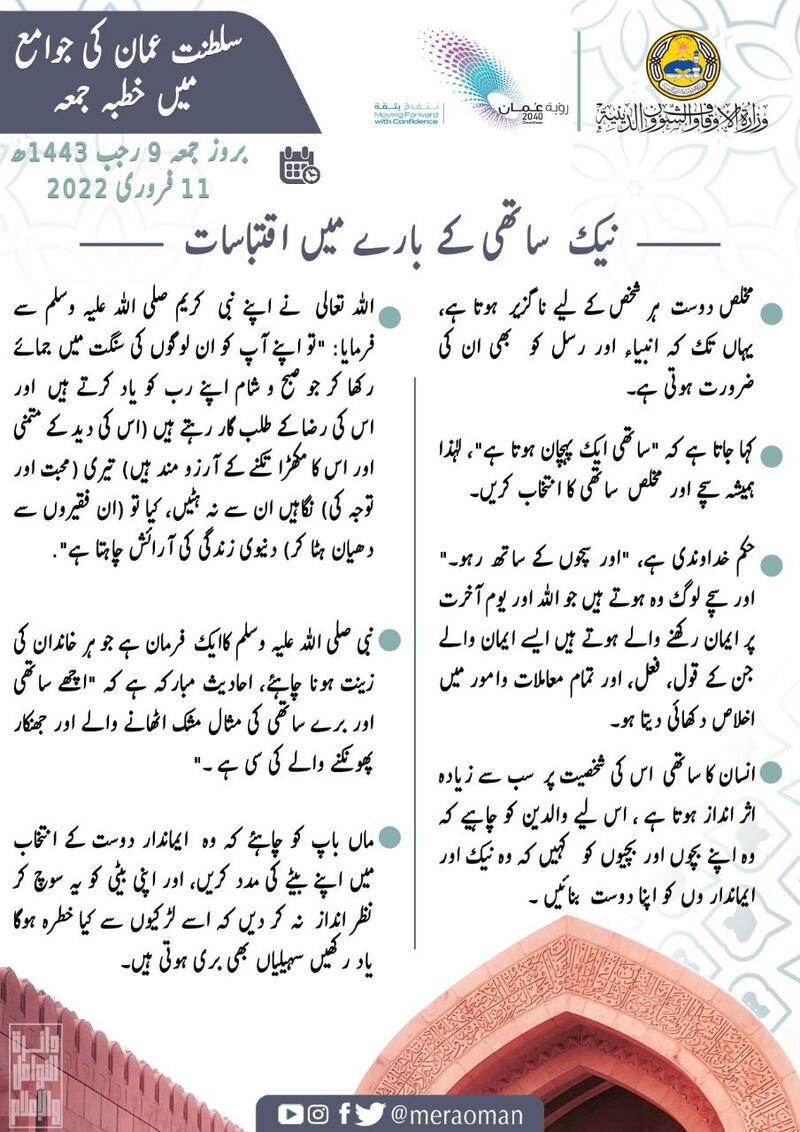 سلطنت عمان کی جوامع
میں خطبہ جمعہ
بروز جمعہ 9 رجب 1443ھ
11 فروری 2022
نتقدم بثقة
Moving Forward
with Confidence
رؤية عُمان
2040
وزارة الأوقاف والشؤون الدينية
نیک ساتھی کے بارے میں اقتباسات
مخلص دوست ہر شخص کے لیے ناگزیر ہوتا ہے،
یہاں تک کہ انبیاء اور رسل کو بھی ان کی
ضرورت ہوتی ہے۔
کہا جاتا ہے کہ "ساتھی ایک پہچان ہوتا ہے"، لہٰذا
ہمیشہ سچے اور مخلص ساتھی کا انتخاب کریں۔
حکم خداوندی ہے، "اور سچوں کے ساتھ رہو۔"
اور سچے لوگ وہ ہوتے ہیں جو اللہ اور یوم آخرت
پر ایمان رکھنے والے ہوتے ہیں ایسے ایمان والے
جن کے قول، فعل، اور تمام معاملات وامور میں
اخلاص دکھائی دیتا ہو۔
انسان کا ساتھی اس کی شخصیت پر سب سے زیادہ
اثر انداز ہوتا ہے ، اس لیے والدین کو چاہیے کہ
وہ اپنے بچوں اور بچیوں کو کہیں کہ وہ نیک اور
ایماندار وں کو اپنا دوست بنائیں ۔
اللہ تعالی نے اپنے نبی کریم صلی اللہ علیہ وسلم سے
فرمایا: "تو اپنے آپ کو ان لوگوں کی سنگت میں جمائے
رکھا کر جو صبح و شام اپنے رب کو یاد کرتے ہیں اور
اس کی رضا کے طلب گار رہتے ہیں (اس کی دید کے متمنی
اور اس کا مکھڑا تکنے کے آرزو مند ہیں) تیری (محبت اور
توجہ کی) نگاہیں ان سے نہ ہٹیں، کیا تو (ان فقیروں سے
دھیان ہٹا کر) دنیوی زندگی کی آرائش چاہتا ہے".
نبی صلی اللہ علیہ وسلم کاایک فرمان ہے جو ہر خاندان کی
زینت ہونا چاہئے، احادیث مبارکہ ہے کہ "اچھے ساتھی
اور برے ساتھی کی مثال مشک اٹھانے والے اور جھنکار
پھونکنے والے کی سی ہے ۔"
ماں باپ کو چاہئے کہ وہ ایماندار دوست کے انتخاب
میں اپنے بیٹے کی مدد کریں، اور اپنی بیٹی کو یہ سوچ کر
نظر انداز نہ کر دیں کہ اسے لڑکیوں سے کیا خطرہ ہوگا
یاد رکھیں سہیلیاں بھی بری ہوتی ہیں۔
دائرة
التواصل
والإعلام
@meraoman